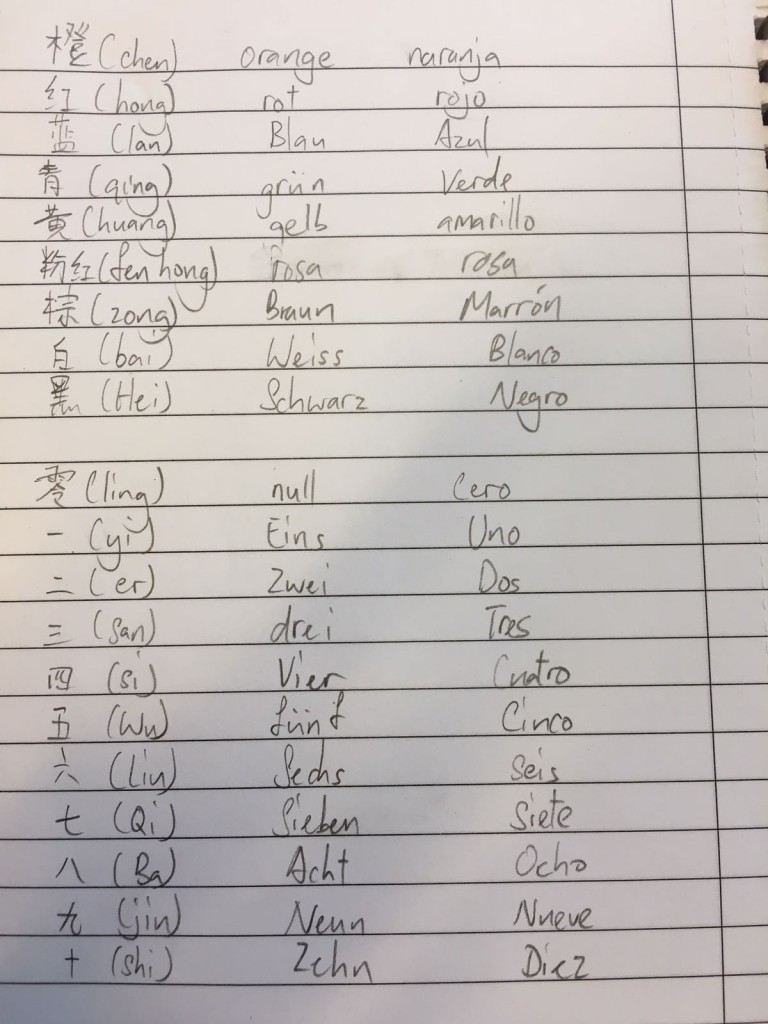 橙 (chen) orange naranja
红 (hong) rot rojo
蓝 (lan) Blau Azul
青 (qing) grün Verde
黄 (huang) gelb amarillo
粉红 (fen hong) rosa rosa
棕 (zong) Braun Marrón
白 (bai) Weiss Blanco
黑 (Hei) Schwarz Negro
零 (ling) null Cero
一 (yi) Eins Uno
二 (er) Zwei Dos
三 (san) drei Tres
四 (si) Vier Cuatro
五 (Wu) fünf Cinco
六 (liu) Sechs Seis
七 (Qi) Sieben Siete
八 (Ba) Acht Ocho
九 (jiu) Neun Nueve
十 (shi) Zehn Diez